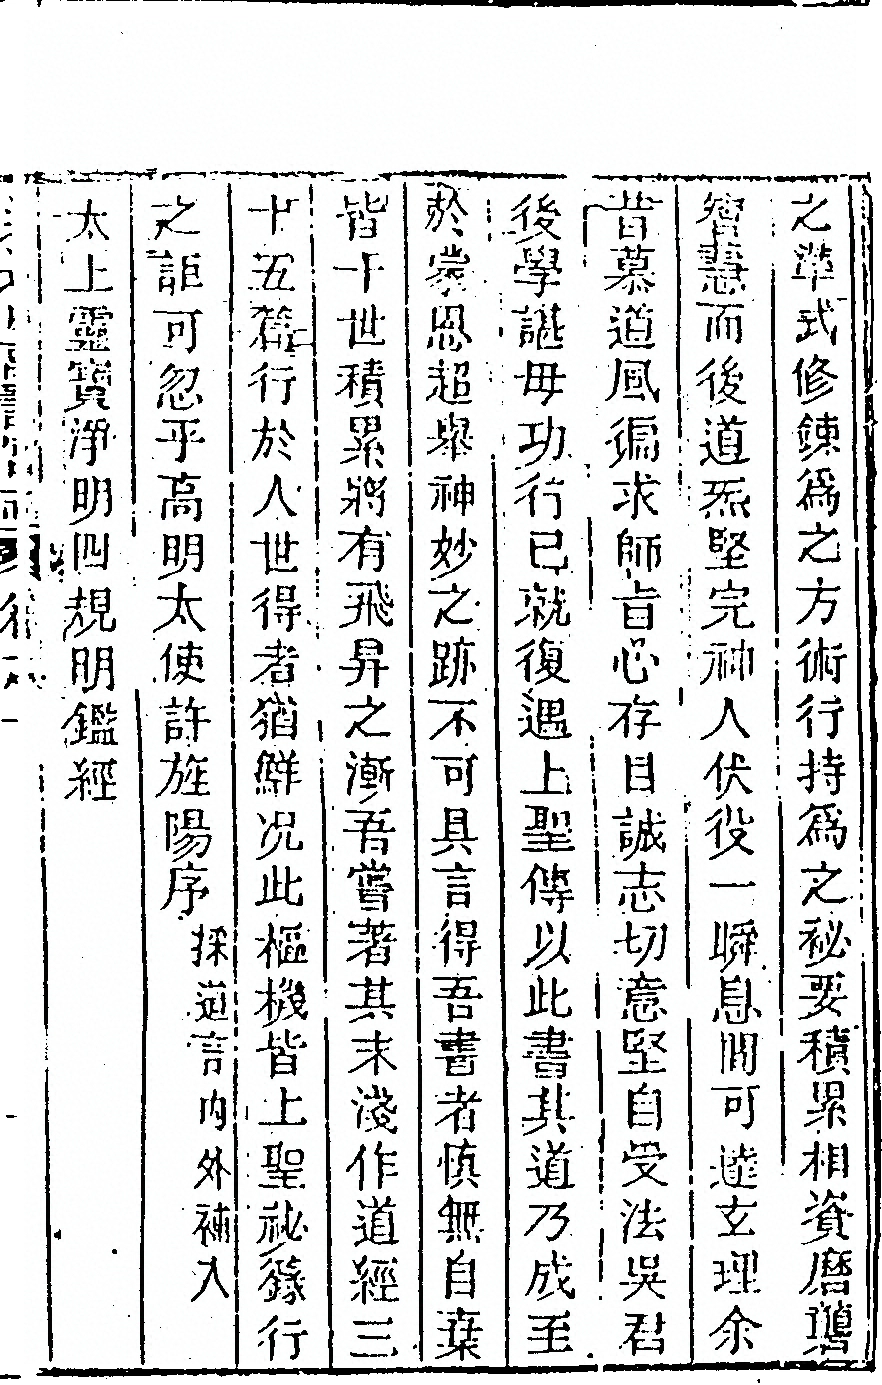 之準式修鍊爲之方術行持爲之祕要積累相資磨礲
智慧而後道炁堅完神人伏役一瞬息間可達玄理余
昔慕道風徧求師旨心存目誠志切意堅自受法吳君
後學諶母功行已就復遇上聖傳以此書其道乃成至
於蒙恩超舉神妙之跡不可具言得吾書者慎無自棄
皆十世積累將有飛昇之漸吾嘗著其末淺作道經三
十五篇行於人世得者猶鮮况此樞機皆上聖祕籙行
之詎可忽乎高明太使許旌陽序
採道言內外補入
太上靈寶淨明四規明鑑經